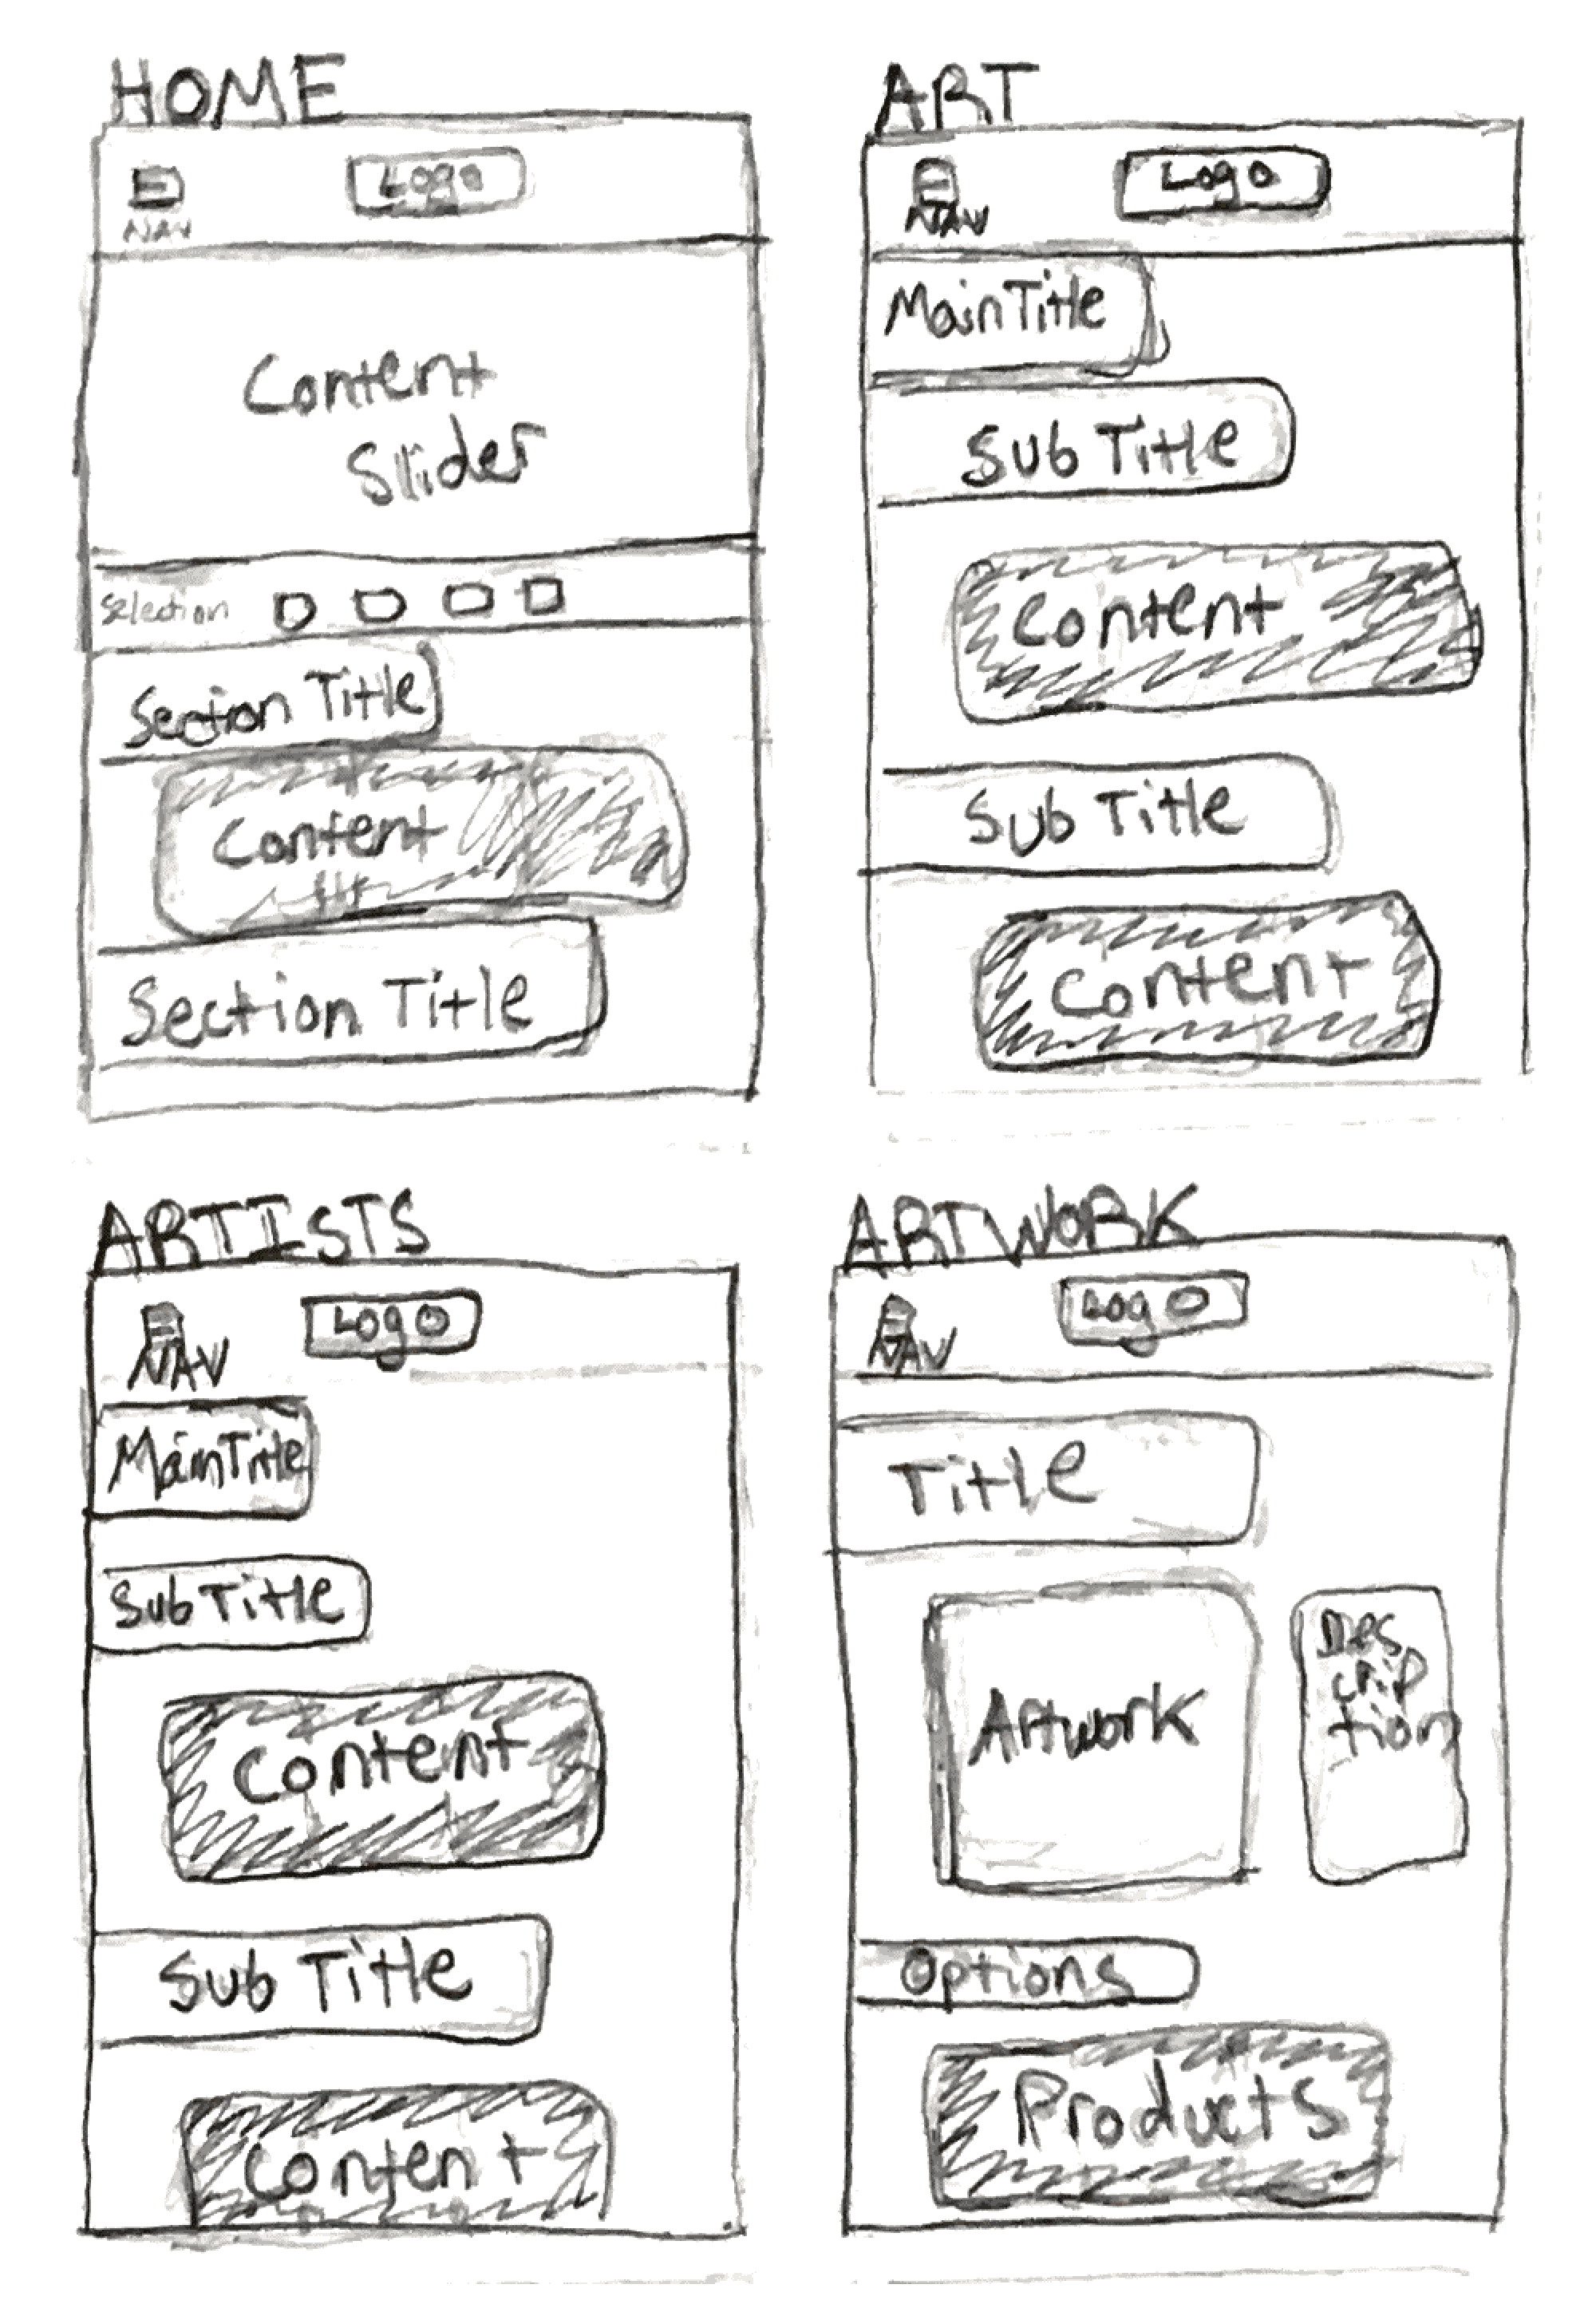 HOME
NAV
Logo
Content
Slider
Selection
Section Title
Content
Section Title
ART
NAV
Logo
Main Title
Sub Title
Content
Sub Title
Content
ARTISTS
NAV
Logo
Main Title
Sub Title
Content
Sub Title
Content
ARTWORK
NAV
Logo
Title
Artwork
Des
crip
tion
Options
Products